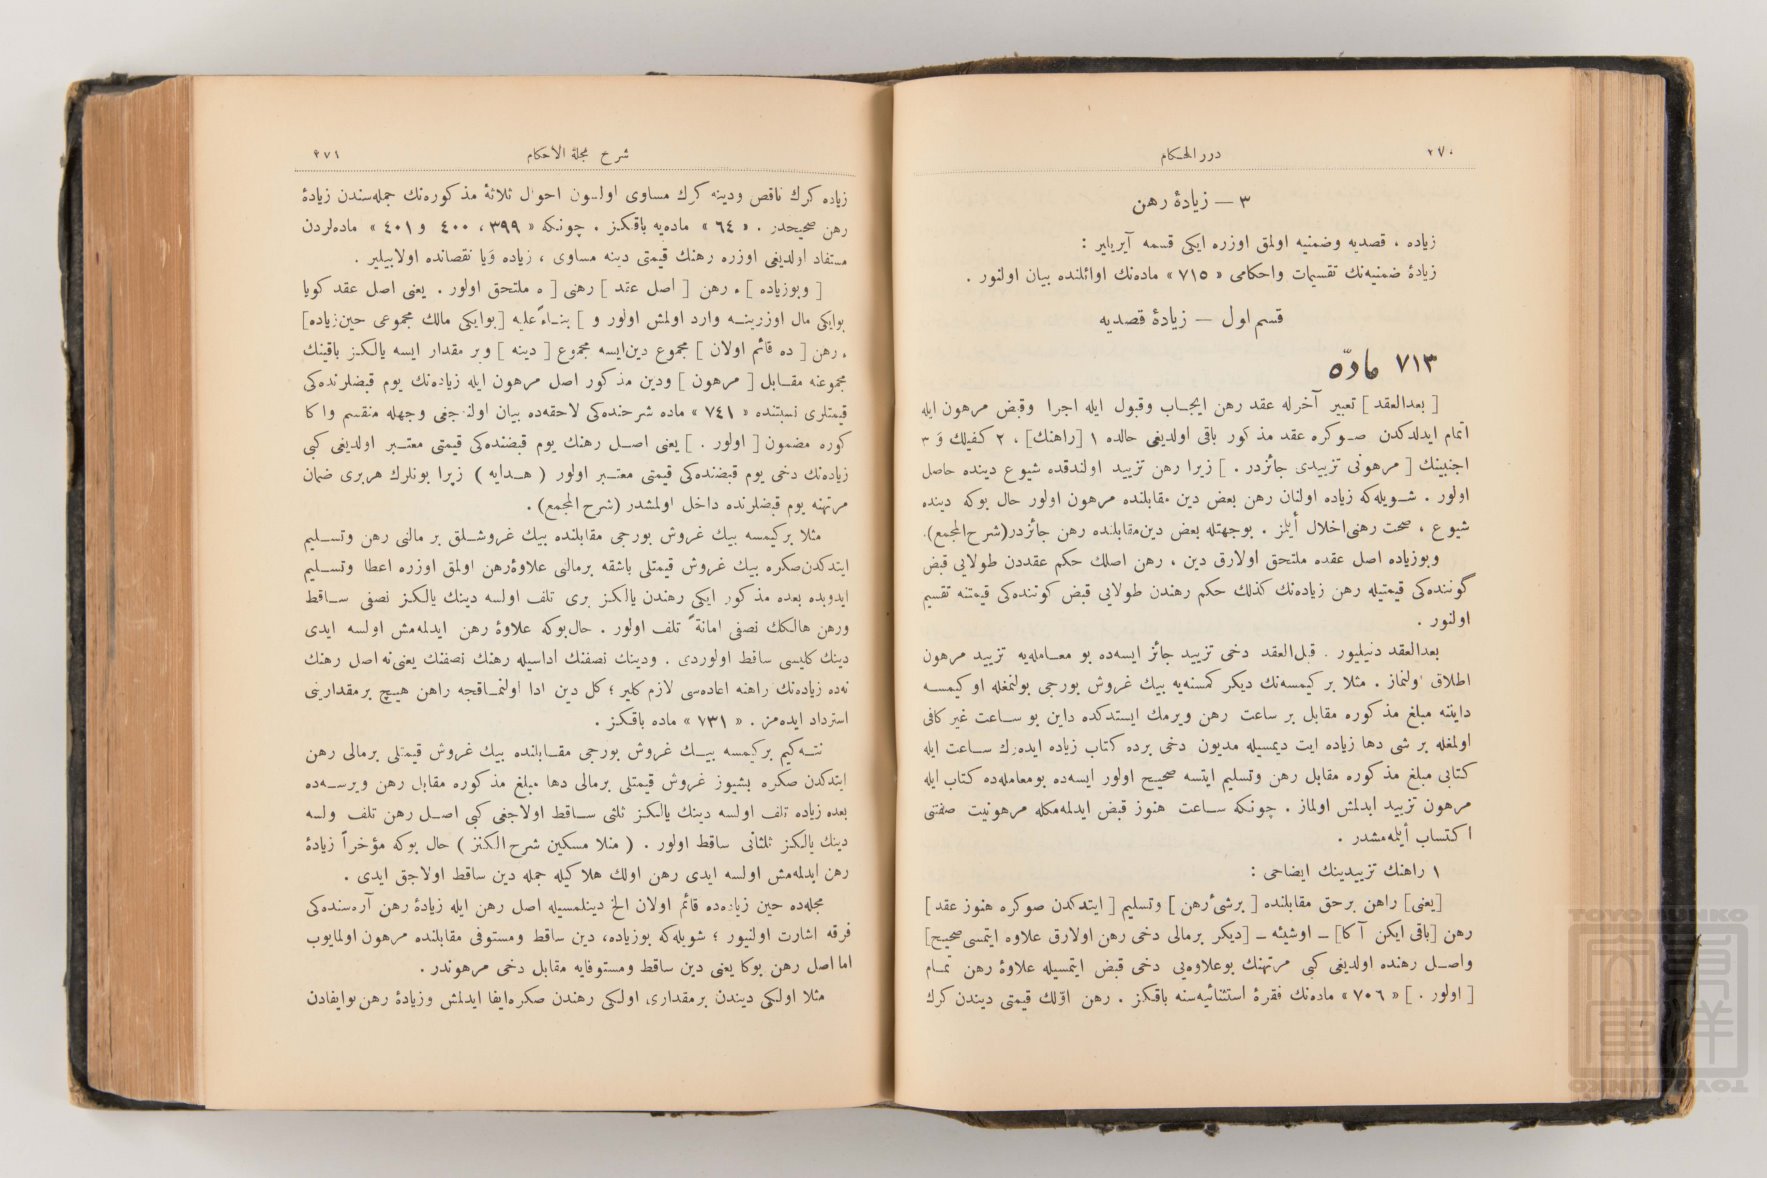 ٢٧٠
درر الحكام
٣ — زیادۀ رهن
زیاده ، قصدیه وضمنیه اولمق اوزره ایكی قسمه آیریلیر :
زیادۀ ضمنیه‌نك تقسیمات واحكامی « ٧١٥ » ماده‌نك اوائلنده بیان اولنور .
قسم اول — زیادۀ قصدیه
٧١٣ مادّه
[ بعدالعقد ] تعبیر آخرله عقد رهن ایجـاب وقبول ایله اجرا وقبض مرهون ایله
اتمام ایدلدكدن صوكره عقد مذكور باقی اولدیغی حالده ١ [راهنك] ، ٢ كفیلك وَ ٣
اجنبینك [ مرهونی تزییدی جائزدر . ] زیرا رهن تزیید اولندقده شیوع دینده حاصل
اولور . شـویله‌كه زیاده اولنان رهن بعض دین مقابلنده مرهون اولور حال بوكه دینده
شیوع ، صحت رهنی اخلال أیلمز . بوجهتله بعض دین مقابلنده رهن جائزدر(شرح المجمع).
وبوزیاده اصل عقده ملتحق اولارق دین ، رهن اصلك حكم عقددن طولایی قبض
گوننده‌كی قیمتیله رهن زیاده‌نك كذلك حكم رهندن طولایی قبض كوننده‌كی قیمتنه تقسیم
اولنور .
بعدالعقد دنیلیور . قبل‌العقد دخی تزیید جائز ایسه‌ده بو معـامله‌یه تزیید مرهون
اطلاق اولنماز . مثلا بر كیمسه‌نك دیكر كمسنه‌یه بیك غروش بورجی بولنمغله او كیمسـه
داینته مبلغ مذكوره مقابل بر ساعت رهن ویرمك ایستدكده داین بو سـاعت غیر كافی
اولمغله بر شی دها زیاده ایت دیمسیله مدیون دخی برده كتاب زیاده ایده‌رك سـاعت ایله
كتابی مبلغ مذكوره مقابل رهن وتسلیم ایتسه صحیـح اولور ایسه‌ده بومعامله‌ده كتاب ایله
مرهون تزیید ایدلمش اولماز . چونكه سـاعت هنوز قبض ایدلمه‌مكله مرهونیت صفتنی
اكتساب أیلمه‌مشدر .
١ راهنك تزییدینك ایضاحی :
[یعنی] راهن برحق مقابلنده [ برشیٔ رهن ] وتسلیم [ ایتدكدن صوكره هنوز عقد ]
رهن [باقی ایكن آكا] ـ اوشیئه ـ [دیكر برمالی دخی رهن اولارق علاوه ایتمسی صحیح]
واصـل رهنده اولدیغی كبی مرتهنك بوعلاوه‌یی دخی قبض ایتمسیله علاوۀ رهن تمـام
[ اولور . ] « ٧٠٦ » ماده‌نك فقرۀ استثنائیه‌سنه باقكز . رهن اوّلك قیمتی دیندن كرك
٢٧١
شرح مجلة الاحكام
زیاده كرك ناقص ودینه كرك مساوی اولسون احوال ثلاثۀ مذكوره‌نك جمله‌سندن زیادۀ
رهن صحیحدر . « ٦٤ » ماده‌یه باقكز . چونكه « ٣٩٩ ، ٤٠٠ و ٤٠١ » ماده‌لردن
مستفاد اولدیغی اوزره رهنك قیمتی دینه مساوی ، زیاده وَیا نقصانده اولابیلیر .
[ وبوزیاده ] ، رهن [ اصل عقد ] رهنی [ ه ملتحق اولور . یعنی اصل عقد كویا
بوایكی مال اوزرینـه وارد اولمش اولور و ] بنـاءً علیه [بوایكی مالك مجموعی حین‌زیاده]
ء رهن [ ده قائم اولان ] مجموع دین‌ایسه مجموع [ دینه ] وبر مقدار ایسه یالكز باقینك
مجموعنه مقـابل [ مرهون ] ودین مذكور اصل مرهون ایله زیاده‌نك یوم قبضلرنده‌كی
قیمتلری نسبتنده « ٧٤١ » ماده شرحنده‌كی لاحقه‌ده بیان اولنه‌جغی وجهله منقسم واكا
كوره مضمون [ اولور . ] یعنی اصـل رهنك یوم قبضنده‌كی قیمتی معتـبر اولدیغی كبی
زیاده‌نك دخی یوم قبضنده‌كی قیمتی معتـبر اولور ( هـدایه ) زیرا بونلرك هربری ضمان
مرتهنه یوم قبضلرنده داخل اولمشدر (شرح المجمع) .
مثلا بركیمسه بیك غروش بورجی مقابلنده بیك غروشـلق بر مالنی رهن وتسـلیم
ایتدكدن‌صكره بیك غروش قیمتلی باشقه برمالنی علاوۀرهن اولمق اوزره اعطا وتسـلیم
ایدوبده بعده مذكور ایكی رهندن یالكز بری تلف اولسه دینك یالكز نصفی سـاقط
ورهن هالكك نصفی امانةً تلف اولور . حال‌بوكه علاوۀ رهن ایدلمه‌مش اولسه ایدی
دینك كلیسی ساقط اولوردی . ودینك نصفنك اداسیله رهنك نصفنك یعنی نه اصل رهنك
نه‌ده زیاده‌نك راهنه اعاده‌سی لازم كلیر ؛ كل دین ادا اولنمـاقجه راهن هیـچ برمقدارینی
استرداد ایده‌مز . « ٧٣١ » ماده باقكز .
نتـه‌كیم بركیمسه بیـك غروش بورجی مقـابلنده بیك غروش قیمتلی برمالی رهن
ایتدكدن صكره بشیوز غروش قیمتلی برمالی دها مبلغ مذكوره مقابل رهن ویرسـه‌ده
بعده زیاده تلف اولسه دینك یالكز ثلثی سـاقط اولاجغی كبی اصـل رهن تلف اولسه
دینك یالكز ثلثانی ساقط اولور . ( منلا مسكین شرح الكنز ) حال بوكه مؤخراً زیادۀ
رهن ایدلمه‌مش اولسه ایدی رهن اولك هلاكیله جمله دین ساقط اولاجق ایدی .
مجله‌ده حین زیاده‌ده قائم اولان الخ دینلمسیله اصل رهن ایله زیادۀ رهن آره‌سنده‌كی
فرقه اشارت اولنیور ؛ شویله‌كه بوزیاده، دین ساقط ومستوفی مقابلنده مرهون اولمایوب
اما اصل رهن بوكا یعنی دین ساقط ومستوفایه مقابل دخی مرهوندر .
مثلا اولكی دیندن برمقداری، اولكی رهندن صكره‌ایفا ایدلمش وزیادۀ رهن بوایفادن